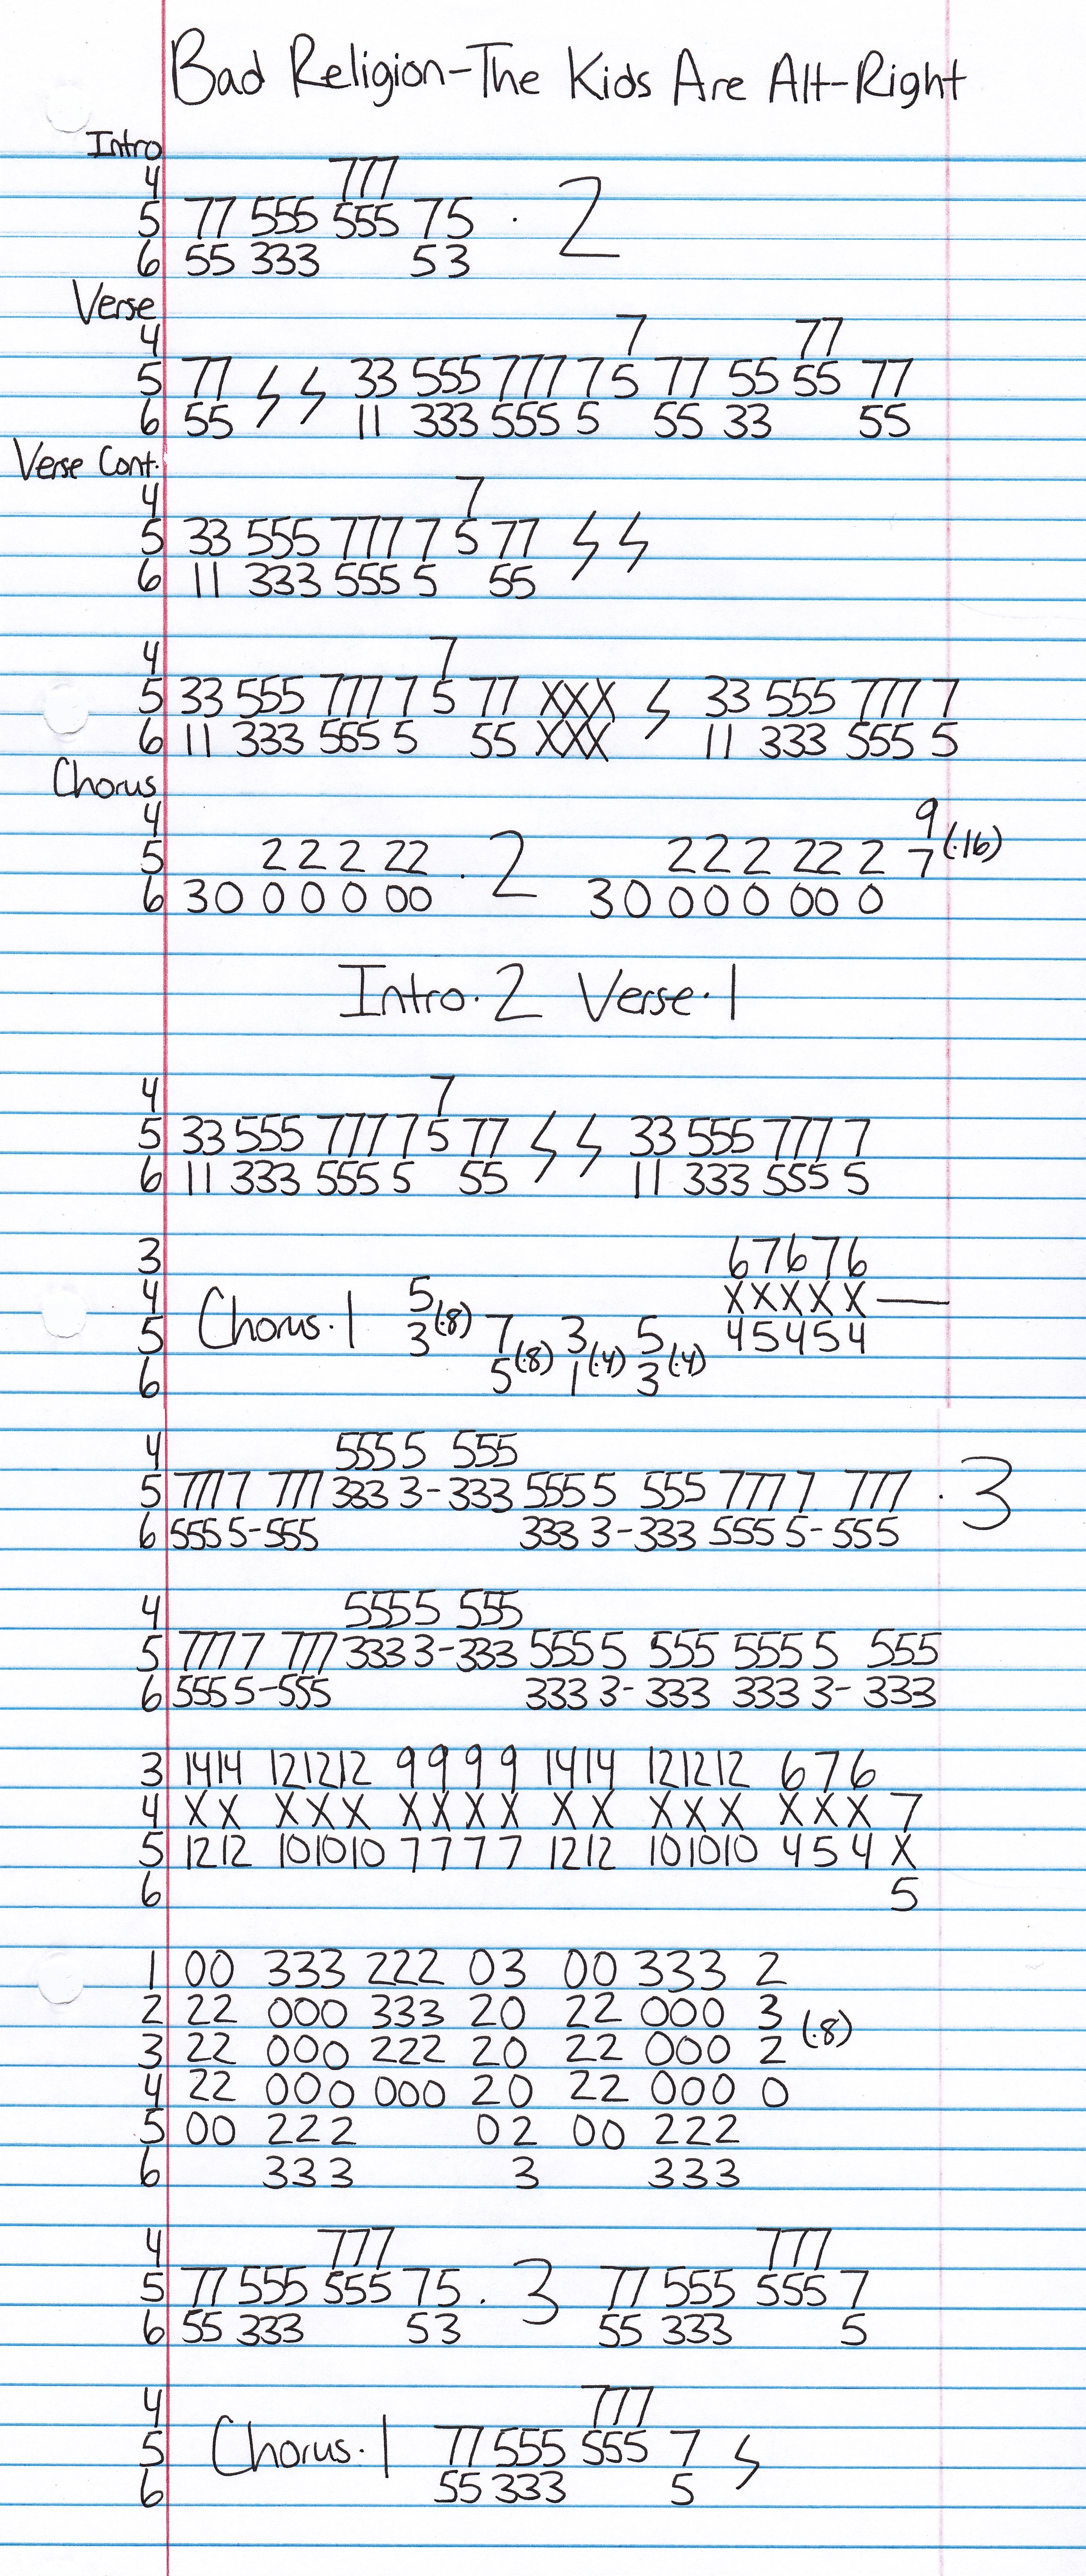 Bad Religion-The Kids Are Alt-Right
Intro
4 777
5 77 555 555 75 · 2
6 55 333 53
Verse
4 7 77
5 77 33 555 777 7 5 77 55 55 77
6 55 11 333 555 5 55 33 55
Verse Cont.
4 7
5 33 555 777 7 5 77
6 11 333 555 5 55
4 7
5 33 555 777 7 5 77 XXX 33 555 777 7
6 11 333 555 5 55 XXX 11 333 555 5
Chorus
4 9
5 2 2 2 22 · 2 2 2 2 22 2 7 (·16)
6 30 0 0 0 00 30 0 0 0 00 0
Intro·2 Verse·1
4 7
5 33 555 777 7 5 77 33 555 777 7
6 11 333 555 5 55 11 333 555 5
3 67676
4 Chorus·1 5 XXXXX—
5 3(·8) 7 3 5 45454
6 5(·8) 1(·4) 3(·4)
4 555 5 555
5 777 7 777 333 3-333 555 5 555 777 7 777 · 3
6 555 5-555 333 3-333 555 5-555
4 555 5 555
5 777 7 777 333 3-333 555 5 555 555 5 555
6 555 5-555 333 3-333 333 3-333
3 1414 121212 9 9 9 9 1414 121212 6 7 6
4 X X X X X X X X X X X X X X X X X 7
5 1212 101010 7 7 7 7 1212 101010 4 5 4 X
6 5
1 00 333 222 03 00 333 2
2 22 000 333 20 22 000 3 (·8)
3 22 000 222 20 22 000 2
4 22 000 000 20 22 000 0
5 00 222 02 00 222
6 333 3 333
4 777 777
5 77 555 555 75 · 3 77 555 555 7
6 55 333 53 55 333 5
4 777
5 Chorus·1 77 555 555 7
6 55 333 5